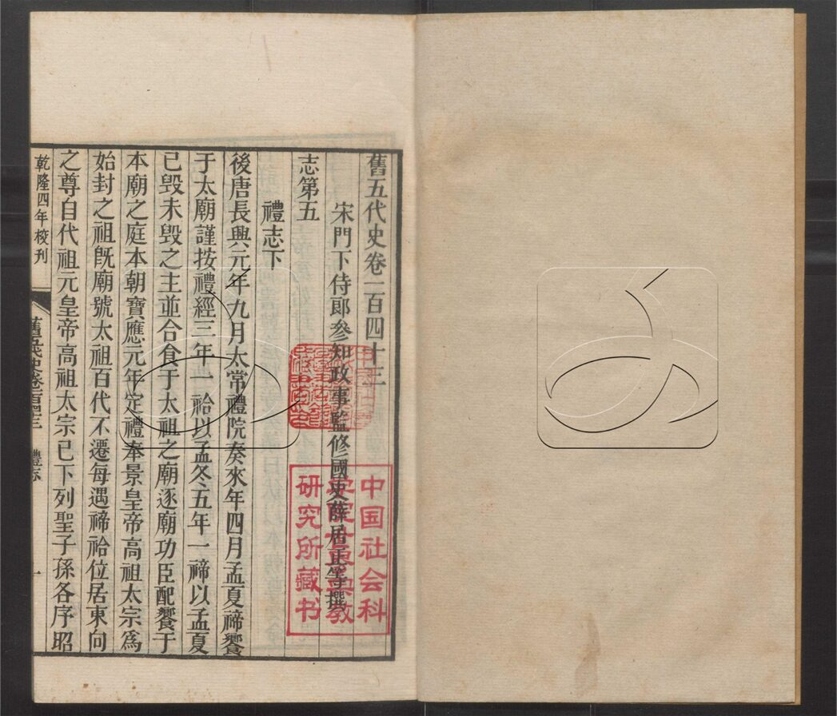 舊五代史卷一百四十三
宋門下侍郎參知政事監修國史薛居正等撰
志第五
禮志下
後唐長興元年九月太常禮院奏來年四月孟夏禘饗
于太廟謹按禮經三年一祫以孟冬五年一禘以孟夏
已毀未毀之主並合食于太祖之廟逐廟功臣配饗于
本廟之庭本朝寶應元年定禮奉景皇帝高祖太宗爲
始封之祖旣廟號太祖百代不遷每遇禘祫位居東向
之尊自代祖元皇帝高祖太宗已下列聖子孫各序昭
乾隆四年校刊
舊五代史卷一百四十三 禮志
一
中国社会科
学院世界宗教
研究所藏书